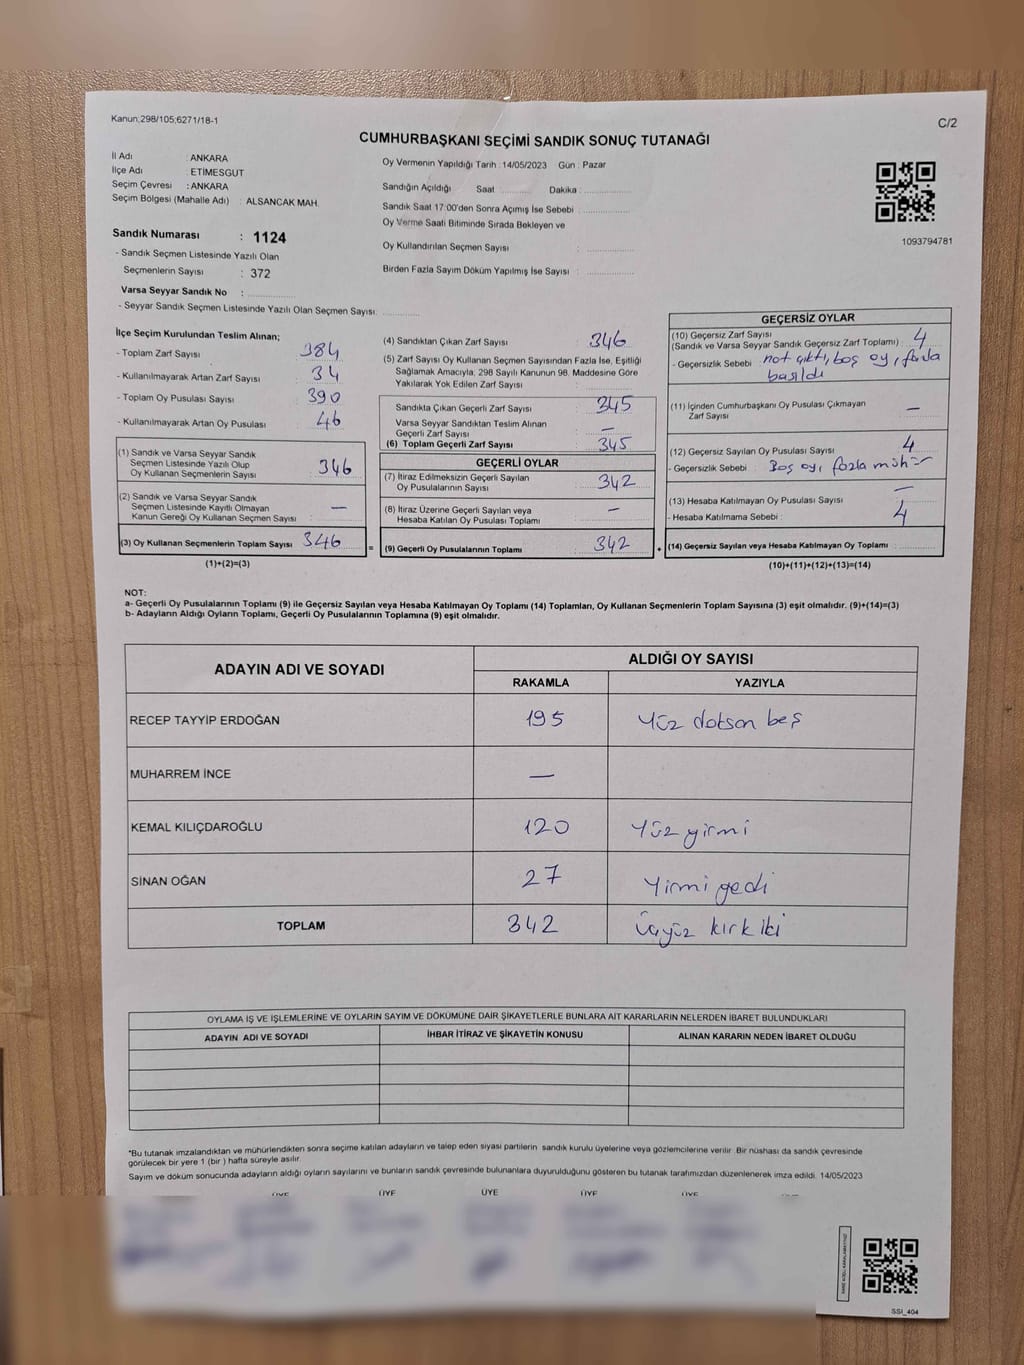 Kanun;298/105;6271/18-1
C/2
CUMHURBAŞKANI SEÇİMİ SANDIK SONUÇ TUTANAĞI
İl Adı : ANKARA
İlçe Adı : ETİMESGUT
Seçim Çevresi : ANKARA
Seçim Bölgesi (Mahalle Adı) : ALSANCAK MAH.
Oy Vermenin Yapıldığı Tarih : 14/05/2023 Gün : Pazar
Sandığın Açıldığı Saat Dakika :
Sandık Saat 17:00'den Sonra Açımış İse Sebebi :
Oy Verme Saati Bitiminde Sırada Bekleyen ve
Oy Kullandırılan Seçmen Sayısı :
Birden Fazla Sayım Döküm Yapılmış İse Sayısı :
1093794781
Sandık Numarası : 1124
- Sandık Seçmen Listesinde Yazılı Olan
Seçmenlerin Sayısı : 372
Varsa Seyyar Sandık No :
- Seyyar Sandık Seçmen Listesinde Yazılı Olan Seçmen Sayısı:
İlçe Seçim Kurulundan Teslim Alınan;
- Toplam Zarf Sayısı : 384
- Kullanılmayarak Artan Zarf Sayısı : 34
- Toplam Oy Pusulası Sayısı : 390
- Kullanılmayarak Artan Oy Pusulası : 46
(1) Sandık ve Varsa Seyyar Sandık
Seçmen Listesinde Yazılı Olup
Oy Kullanan Seçmenlerin Sayısı : 346
(2) Sandık ve Varsa Seyyar Sandık
Seçmen Listesinde Kayıtlı Olmayan
Kanun Gereği Oy Kullanan Seçmen Sayısı : —
(3) Oy Kullanan Seçmenlerin Toplam Sayısı 346
(1)+(2)=(3)
(4) Sandıktan Çıkan Zarf Sayısı : 346
(5) Zarf Sayısı Oy Kullanan Seçmen Sayısından Fazla İse, Eşitliği
Sağlamak Amacıyla, 298 Sayılı Kanunun 98. Maddesine Göre
Yakılarak Yok Edilen Zarf Sayısı :
Sandıkta Çıkan Geçerli Zarf Sayısı : 345
Varsa Seyyar Sandıktan Teslim Alınan
Geçerli Zarf Sayısı : —
(6) Toplam Geçerli Zarf Sayısı : 345
GEÇERLİ OYLAR
(7) İtiraz Edilmeksizin Geçerli Sayılan
Oy Pusulalarının Sayısı : 342
(8) İtiraz Üzerine Geçerli Sayılan veya
Hesaba Katılan Oy Pusulası Toplamı : —
= (9) Geçerli Oy Pusulalarının Toplamı : 342
GEÇERSİZ OYLAR
(10) Geçersiz Zarf Sayısı
(Sandık ve Varsa Seyyar Sandık Geçersiz Zarf Toplamı) : 4
- Geçersizlik Sebebi : not çıktı, boş oy, fazla
basıldı
(11) İçinden Cumhurbaşkanı Oy Pusulası Çıkmayan
Zarf Sayısı : —
(12) Geçersiz Sayılan Oy Pusulası Sayısı : 4
- Geçersizlik Sebebi : Boş oy, fazla mühür
(13) Hesaba Katılmayan Oy Pusulası Sayısı : —
- Hesaba Katılmama Sebebi : 4
+ (14) Geçersiz Sayılan veya Hesaba Katılmayan Oy Toplamı :
(10)+(11)+(12)+(13)=(14)
NOT:
a- Geçerli Oy Pusulalarının Toplamı (9) ile Geçersiz Sayılan veya Hesaba Katılmayan Oy Toplamı (14) Toplamları, Oy Kullanan Seçmenlerin Toplam Sayısına (3) eşit olmalıdır. (9)+(14)=(3)
b- Adayların Aldığı Oyların Toplamı, Geçerli Oy Pusulalarının Toplamına (9) eşit olmalıdır.
ADAYIN ADI VE SOYADI
ALDIĞI OY SAYISI
RAKAMLA YAZIYLA
RECEP TAYYİP ERDOĞAN 195 Yüz dotson beş
MUHARREM İNCE —
KEMAL KILIÇDAROĞLU 120 Yüz yirmi
SİNAN OĞAN 27 Yirmi yedi
TOPLAM 342 üçyüz kırk iki
OYLAMA İŞ VE İŞLEMLERİNE VE OYLARIN SAYIM VE DÖKÜMÜNE DAİR ŞİKAYETLERLE BUNLARA AİT KARARLARIN NELERDEN İBARET BULUNDUKLARI
ADAYIN ADI VE SOYADI İHBAR İTİRAZ VE ŞİKAYETİN KONUSU ALINAN KARARIN NEDEN İBARET OLDUĞU
*Bu tutanak imzalandıktan ve mühürlendikten sonra seçime katılan adayların ve talep eden siyasi partilerin sandık kurulu üyelerine veya gözlemcilerine verilir. Bir nüshası da sandık çevresinde
görülecek bir yere 1 (bir ) hafta süreyle asılır.
Sayım ve döküm sonucunda adayların aldığı oyların sayılarını ve bunların sandık çevresinde bulunanlara duyurulduğunu gösteren bu tutanak tarafımızdan düzenlenerek imza edildi. 14/05/2023
ÜYE ÜYE ÜYE ÜYE ÜYE
SSI_404